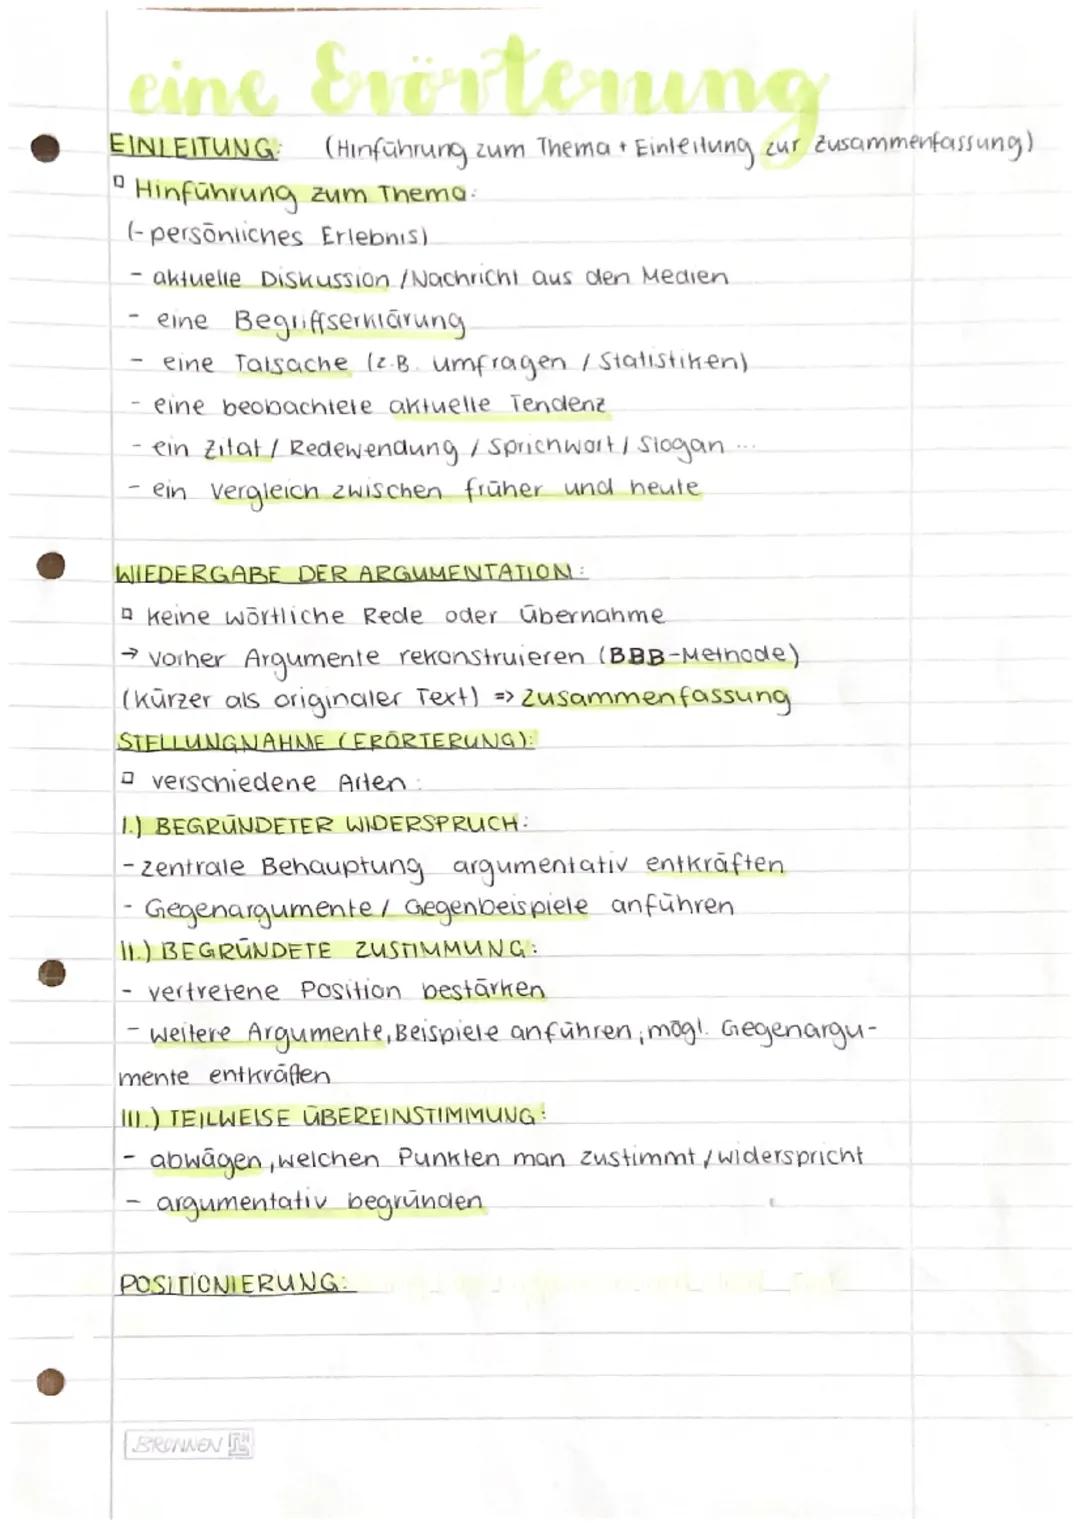 eine Erörterung
EINLEITUNG: (Hinführung zum Thema + Einleitung zur Zusammenfassung)
▫ Hinführung zum Thema:
(- persönliches Erlebnis)
- aktuelle Diskussion / Nachricht aus den Medien
- eine Begriffserklärung
- eine Tatsache (z.B. umfragen / Statistiken)
- eine beobachtete aktuelle Tendenz
- ein Zitat / Redewendung / Sprichwort / Slogan ...
- ein Vergleich zwischen früher und heute
WIEDERGABE DER ARGUMENTATION:
▫ keine wörtliche Rede oder Übernahme
→ vorher Argumente rekonstruieren (BBB-Methode)
(kürzer als originaler Text) => Zusammenfassung
STELLUNGNAHME (ERÖRTERUNG):
▫ verschiedene Arten:
I.) BEGRÜNDETER WIDERSPRUCH:
- zentrale Behauptung argumentativ entkräften
- Gegenargumente / Gegenbeispiele anführen
II.) BEGRÜNDETE ZUSTIMMUNG:
- vertretene Position bestärken
- weitere Argumente, Beispiele anführen; mögl. Gegenargu-
mente entkräften
III.) TEILWEISE ÜBEREINSTIMMUNG:
- abwägen, welchen Punkten man zustimmt / widerspricht
- argumentativ begründen
POSITIONIERUNG:
BRUNNEN